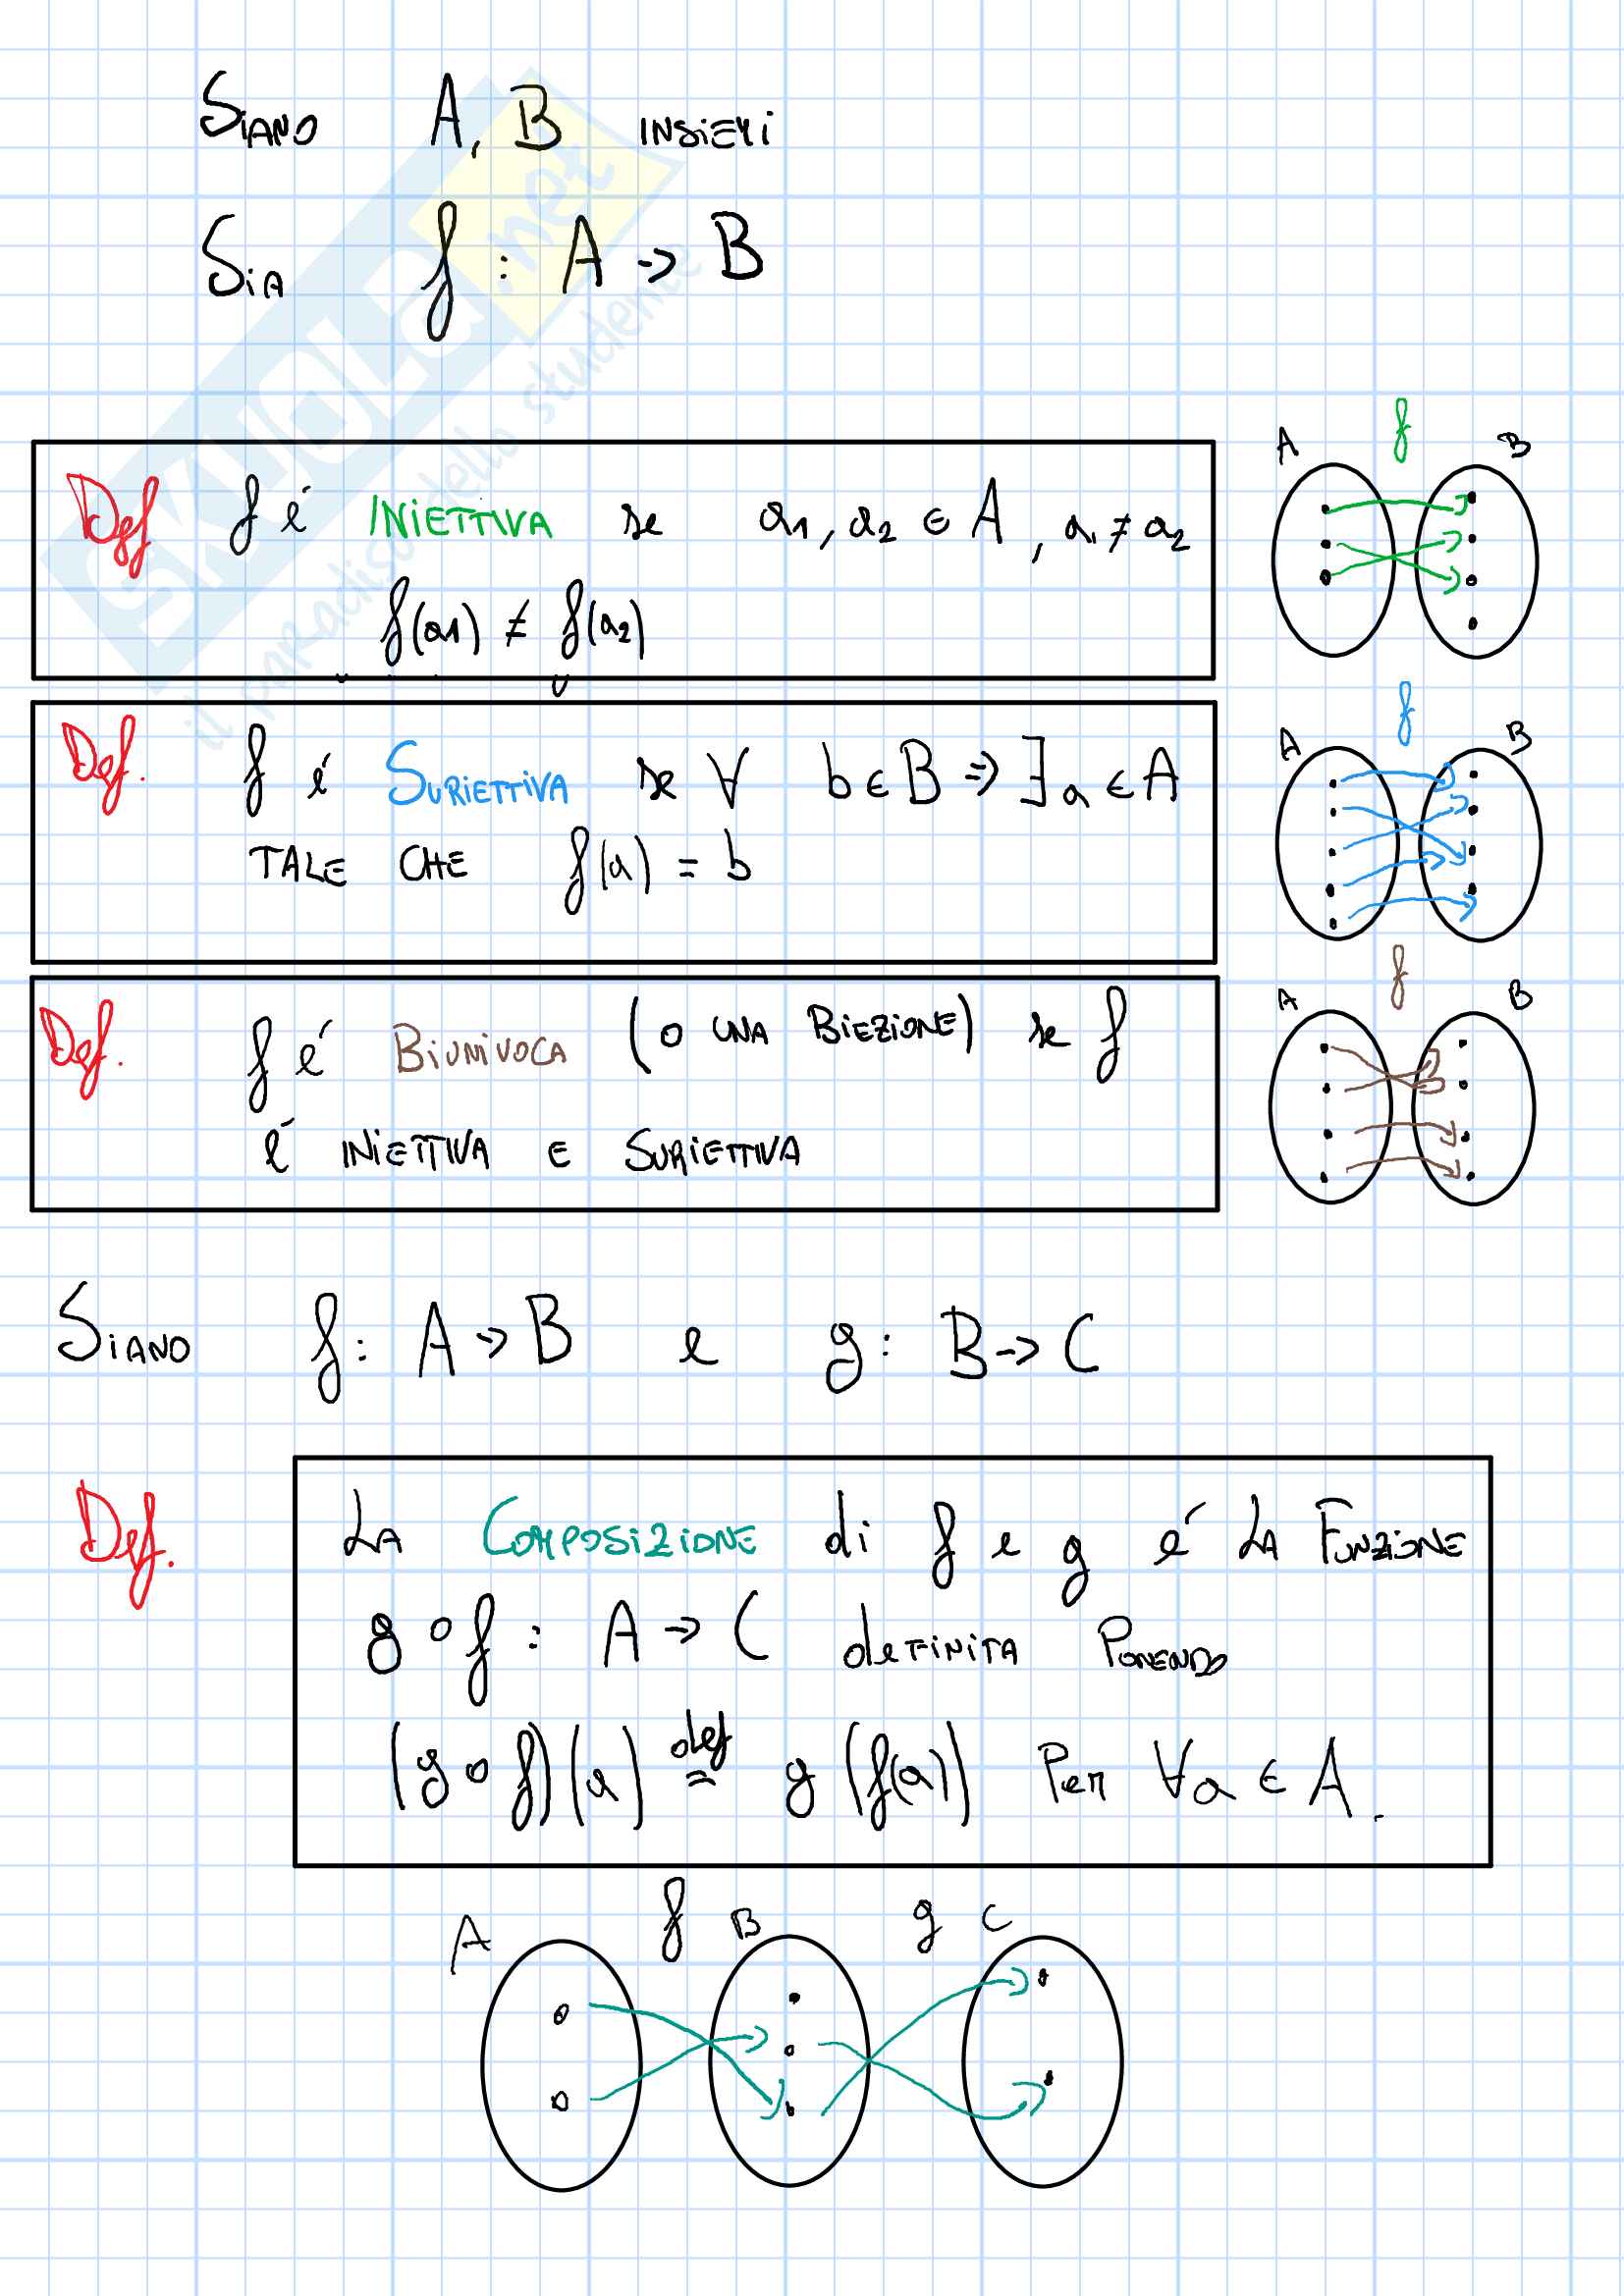 Siano A, B insiemi
Sia f : A → B
Def f é INIETTIVA se a1, a2 ∈ A, a1 ≠ a2
f(a1) ≠ f(a2)
A f B
Def. f é SURIETTIVA se ∀ b ∈ B ⇒ ∃ a ∈ A
TALE CHE f(a) = b
A f B
Def. f é BIUNIVOCA (o UNA BIEZIONE) se f
é INIETTIVA E SURIETTIVA
A f B
SIANO f: A → B e g: B → C
Def. LA COMPOSIZIONE di f e g é LA FUNZIONE
g o f : A → C definita PONENDO
(g o f)(a) def= g(f(a)) Per ∀a ∈ A.
A f B g C
SKUOLA.net
il paradiso dello studente